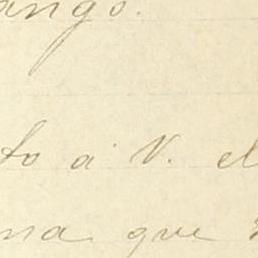 ango.
to á V. el
na que